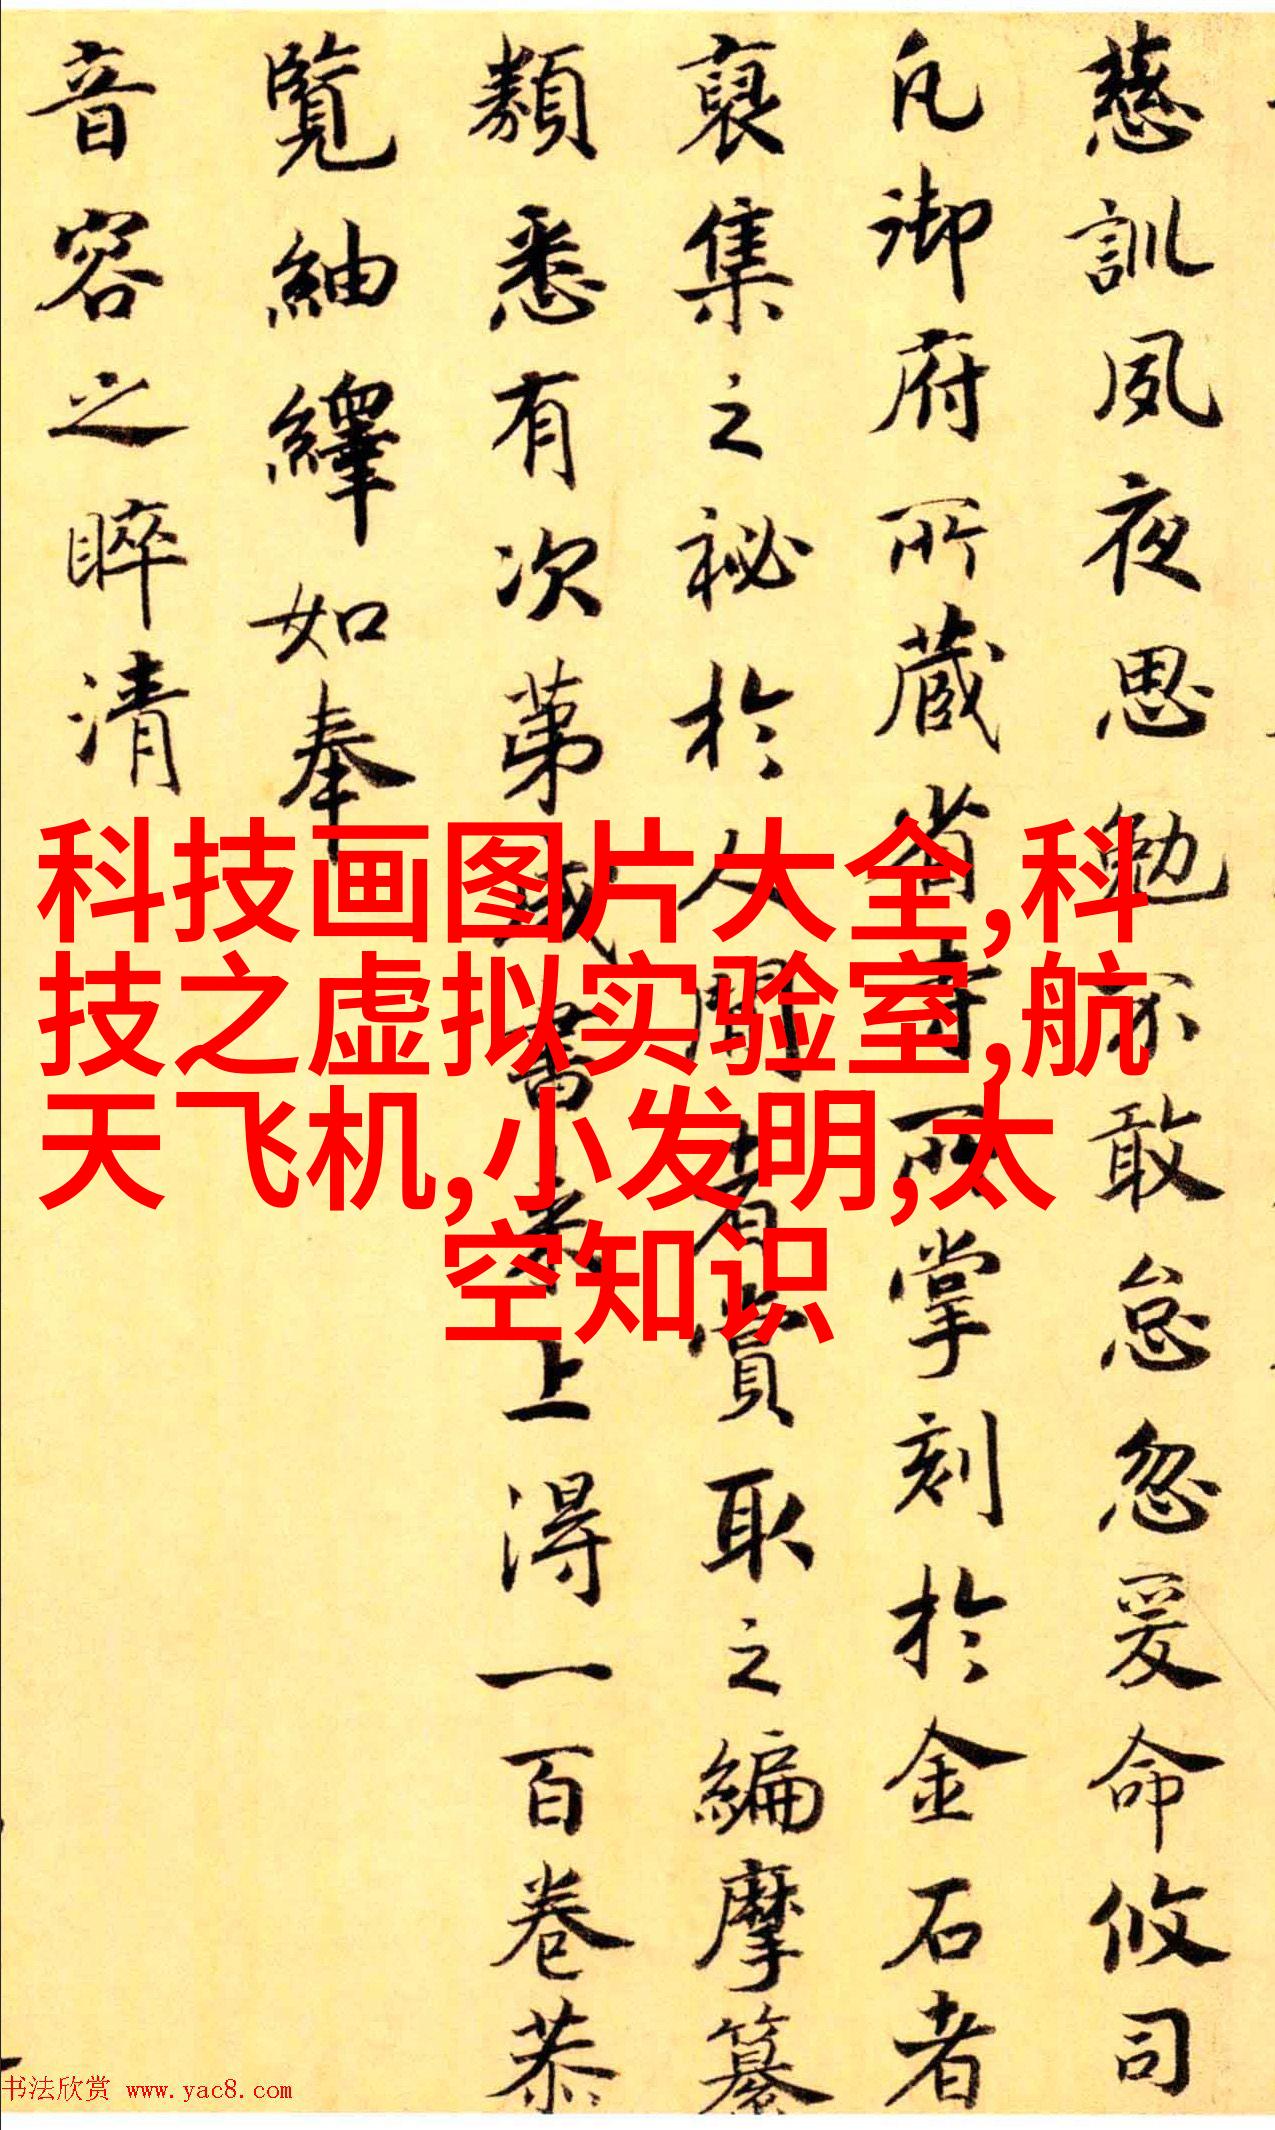 慈訓夙夜思勉不敢怠忽爰命攸司
凡御府所蔵省寺所掌刻於金石者
裒集之祕於人間者賞取之編摩纂
類悉有次第成書来上得一百卷恭
覽紬繹如奉
音容之睟清
科技画图片大全,科
技之虚拟实验室,航
天飞机,小发明,太
空知识
书法欣赏 www.yac8.com